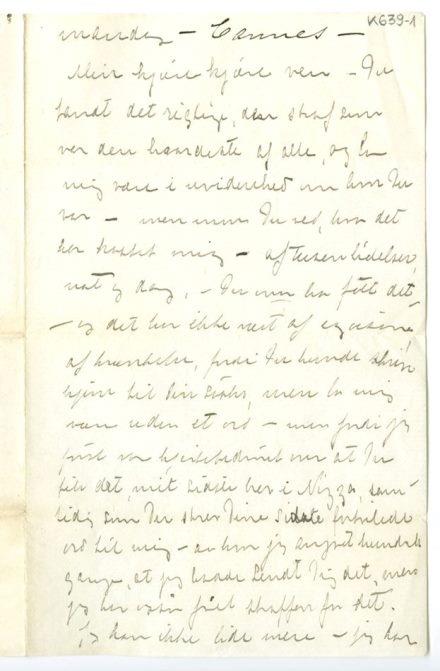 K639-1
mandag – Cannes –
Min kjære kjære ven – Du
fandt det rigtige, den straf som
var den haardeste af alle, og la
mig være i uvidenhed om hvor Du
var – men mon Du ved, hvad det
har kostet mig – af tusen lidelser,
nat og dag, – Du må ha følt det
– og det har ikke vært af
af krænkelse, fordi Du kunde skrive
hjem til din søster, men la mig
være uden et ord – men fordi jeg
først var hjertebedrøvet over at Du
fik det, mit sidste brev i Nizza, sam-
tidig som Du skrev Dine sidste
ord til mig – å hvor jeg angret hundrede
gange, at jeg havde sendt Dig det, men
jeg har også fået straffen for det.
Jeg kan ikke lide mere – jeg har